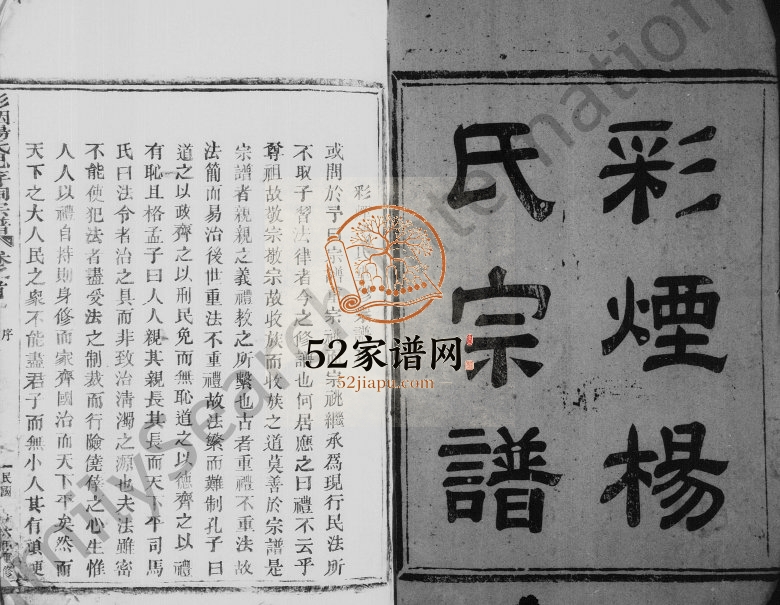 彩煙楊
氏宗譜
彩
或問於予曰宗
祧繼承爲現行民法所
不取子習法律者今之修譜也何居應之曰禮不云乎
尊祖故敬宗敬宗故收族而收族之道莫善於宗譜是
宗譜者親親之義禮教之所繫也古者重禮不重法故
法簡而易治後世重法不重禮故法繁而難制孔子曰
道之以政齊之以刑民免而無恥道之以德齊之以禮
有恥且格孟子曰人人親其親長其長而天下平司馬
氏曰法令者治之具而非致治清濁之源也夫法雖密
不能使犯法者盡受法之制裁而行險僥倖之心生惟
人人以禮自持則身修而家齊國治而天下平矣然而
天下之大人民之衆不能盡君子而無小人其有頑
序
民國
52家谱网
52jiapu.com
FamilySearch International